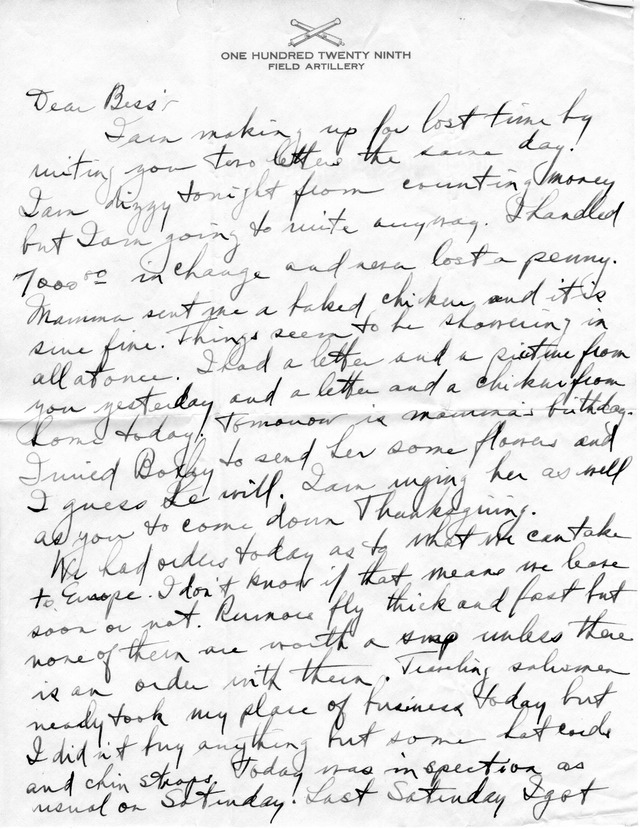 ONE HUNDRED TWENTY NINTH
FIELD ARTILLERY
Dear Bess:
I am making up for lost time by
writing you two letters the same day.
I am dizzy tonight from counting money
but I am going to write anyway. I handled
7000 00 in change and never lost a penny.
Mamma sent me a baked chicken and it is
sure fine. Things seem to be showering in
all at once. I had a letter and a picture from
you yesterday and a letter and a chicken from
home today. Tomorrow is mamma's birthday.
I wired Boxley to send her some flowers and
I guess he will. I am urging her as well
as you to come down Thanksgiving.
We had orders today as to what we can take
to Europe. I don't know if that means we leave
soon or not. Rumors fly thick and fast but
none of them are worth a unless there
is an order with them. Traveling salesmen
nearly took my place of business today but
I didn't buy anything but some hat cords
and chin straps. Today was inspection as
usual on Saturday. Last Saturday I got